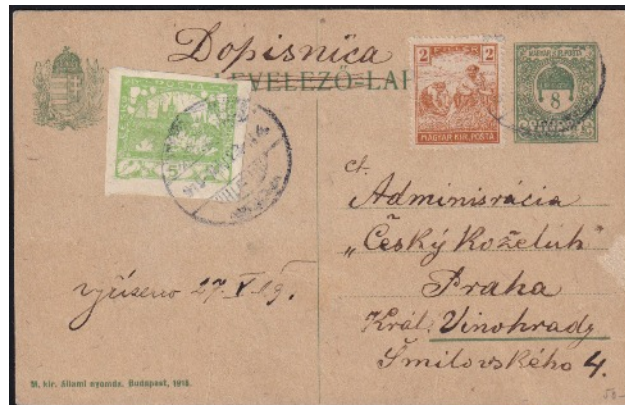 Dopisnica
LEVELEZŐ-LAP
2
MAGYAR KIR. POSTA
MAGYAR KIR. POSTA
8
5
ct.
Adminisrácia
„Český Koželuh"
Praha
Král. Vinohrady
Šmilovského 4.
vyřízeno 27. V. 19.
M. kir. állami nyomda. Budapest, 1918.